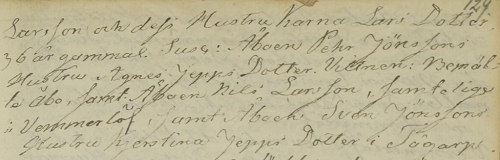 124.
Larsson och dess Hustru Karna Lars Dotter.
36 år gammal. Susc: Åboen Pehr Jönssons
Hustru Agnes Jepps Dotter. Vittnen: Bemäl-
te åbo, samt Åboen Nils Larsson, samtelige
i Vemmerlöf, samt Åboen Sven Jönssons
Hustru Kerstina Jepps Dotter i Tågarp.